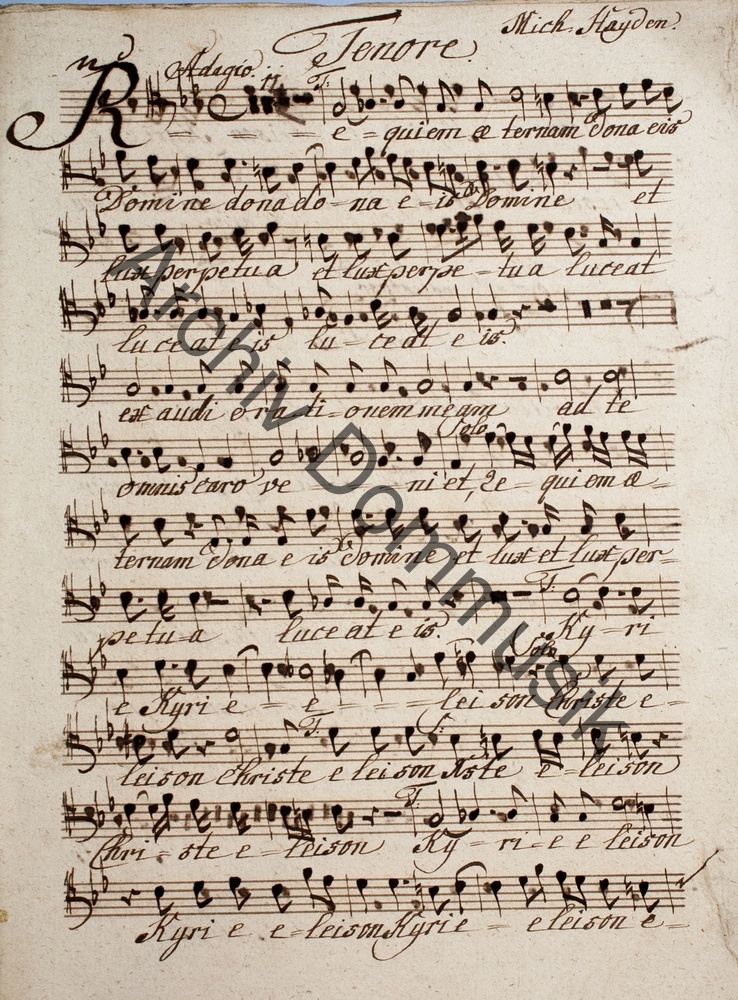 Mich. Hayden.
Tenore.
Adagio. T:
R - - - - e - quiem æ ternam dona eis
Domine dona do - na e - is Domine et
lux perpetua et lux perpe - tua luceat
luceat eis lu - ce at e is.
ex audi o ra - ti - onem meam ad te
Solo
omnis caro ve ni et, Re - quiem æ -
ternam dona e is domine et lux et lux per -
petu - a luceat e is. T: Ky - ri
Solo
e Kyri e - e - - - - lei son Christe e -
T: S:
leison Christe e leison Xste e - leison
T:
Chri - ste e - leison Ky - ri - e e leison
Kyri e e - leison Kyrie - e leison e -
Archiv Dommusik